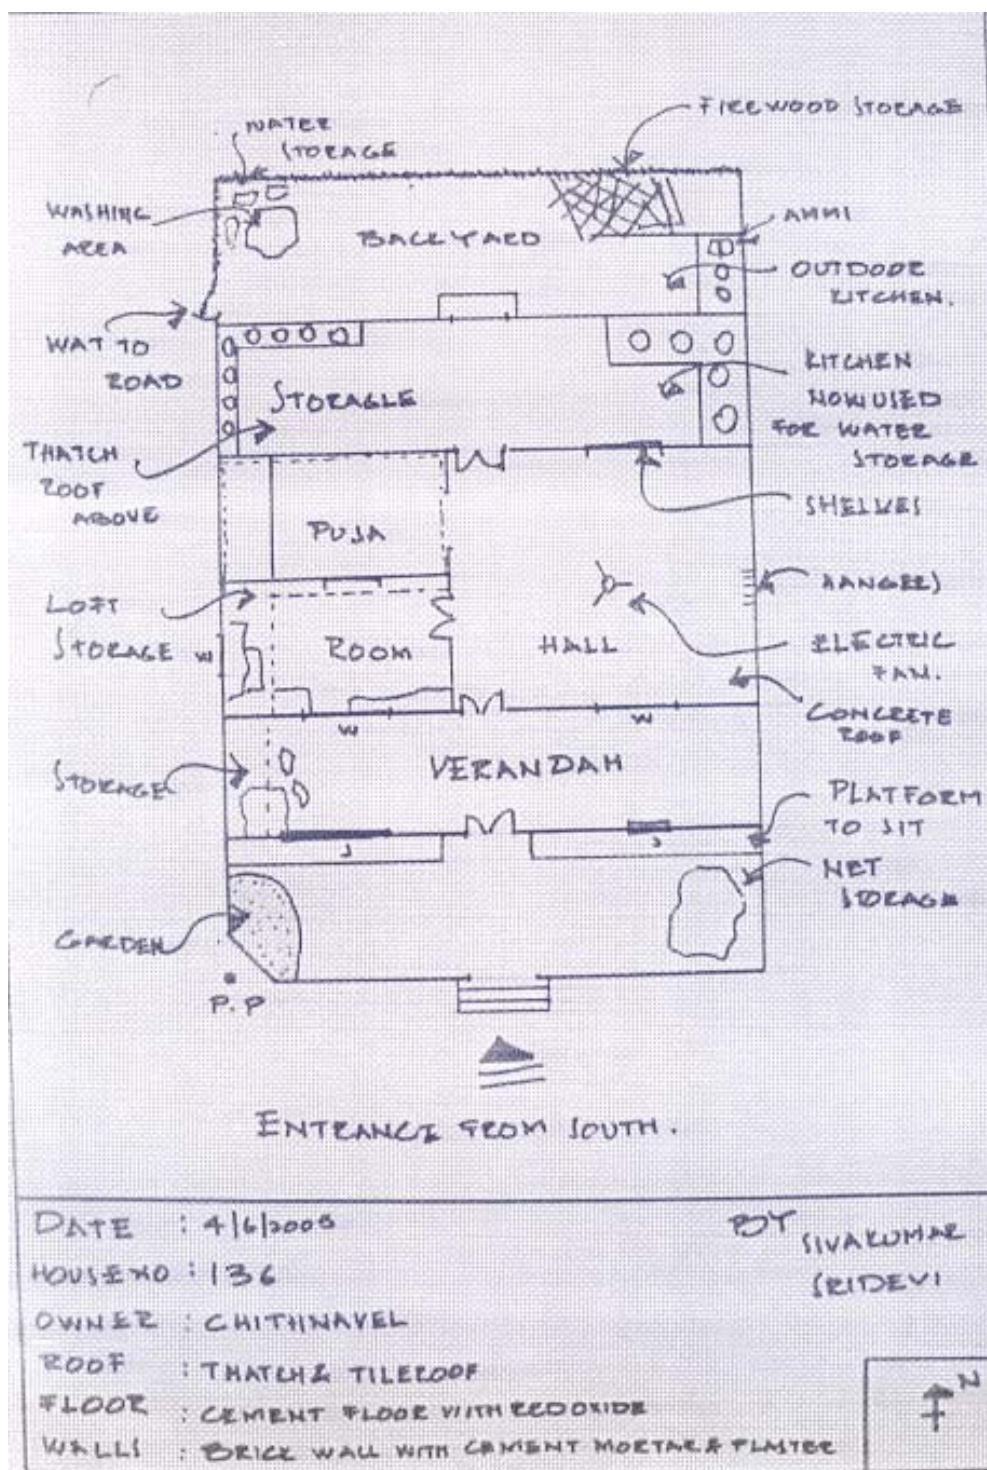 FIREWOOD STORAGE
WATER
STORAGE
WASHING
AREA
BACKYARD
AMMI
OUTDOOR
KITCHEN.
WAT TO
ROAD
STORAGLE
KITCHEN
NOW USED
FOR WATER
STORAGE
THATCH
ROOF
ABOVE
SHELVES
PUJA
HANGER)
LOFT
STORAGE
W
ROOM
HALL
ELECTRIC
FAN.
CONCRETE
ROOF
W
W
STORAGE
VERANDAH
PLATFORM
TO SIT
J
J
NET
STORAGE
GARDEN
P.P
ENTRANCE FROM SOUTH.
DATE : 4/6/2005
BY SIVAKUMAR
SRIDEVI
HOUSE NO : 136
OWNER : CHITHNAVEL
ROOF : THATCH & TILEROOF
FLOOR : CEMENT FLOOR WITH REDOXIDE
WALLS : BRICK WALL WITH CEMENT MORTAR & PLASTER
N